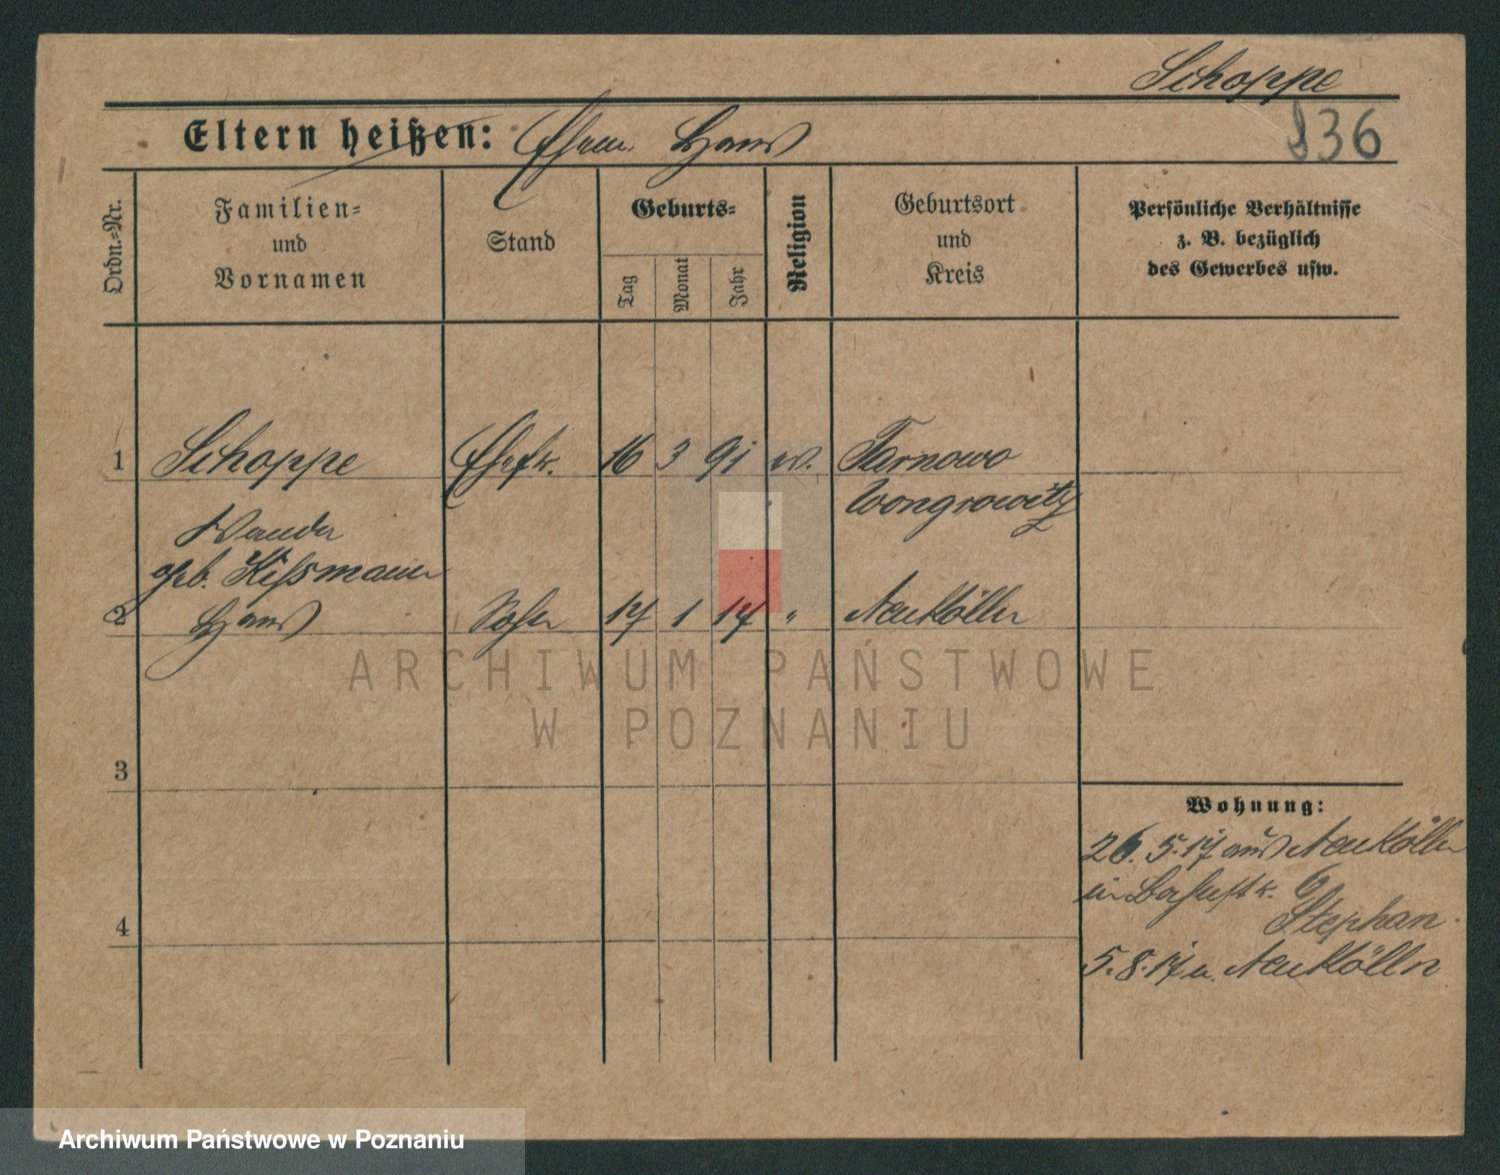 Schoppe
Eltern heißen: Ehem. Hans
836
Ordn.-Nr.
Familien-
und
Vornamen
Stand
Geburts-
Tag
Monat
Jahr
Religion
Geburtsort
und
Kreis
Persönliche Verhältnisse
z. B. bezüglich
des Gewerbes usw.
1 Schoppe Ehefr. 16 3 91 ev. Tarnowo
Wongrowitz
Wanda
geb. Kißmann
2 Hans Sohn 17 1 14 " Neukölln
ARCHIWUM PAŃSTWOWE
W POZNANIU
3
4
Wohnung:
26. 5. 17 aus Neukölln
in 6
Stephan.
5. 8. 17 n. Neukölln
Archiwum Państwowe w Poznaniu